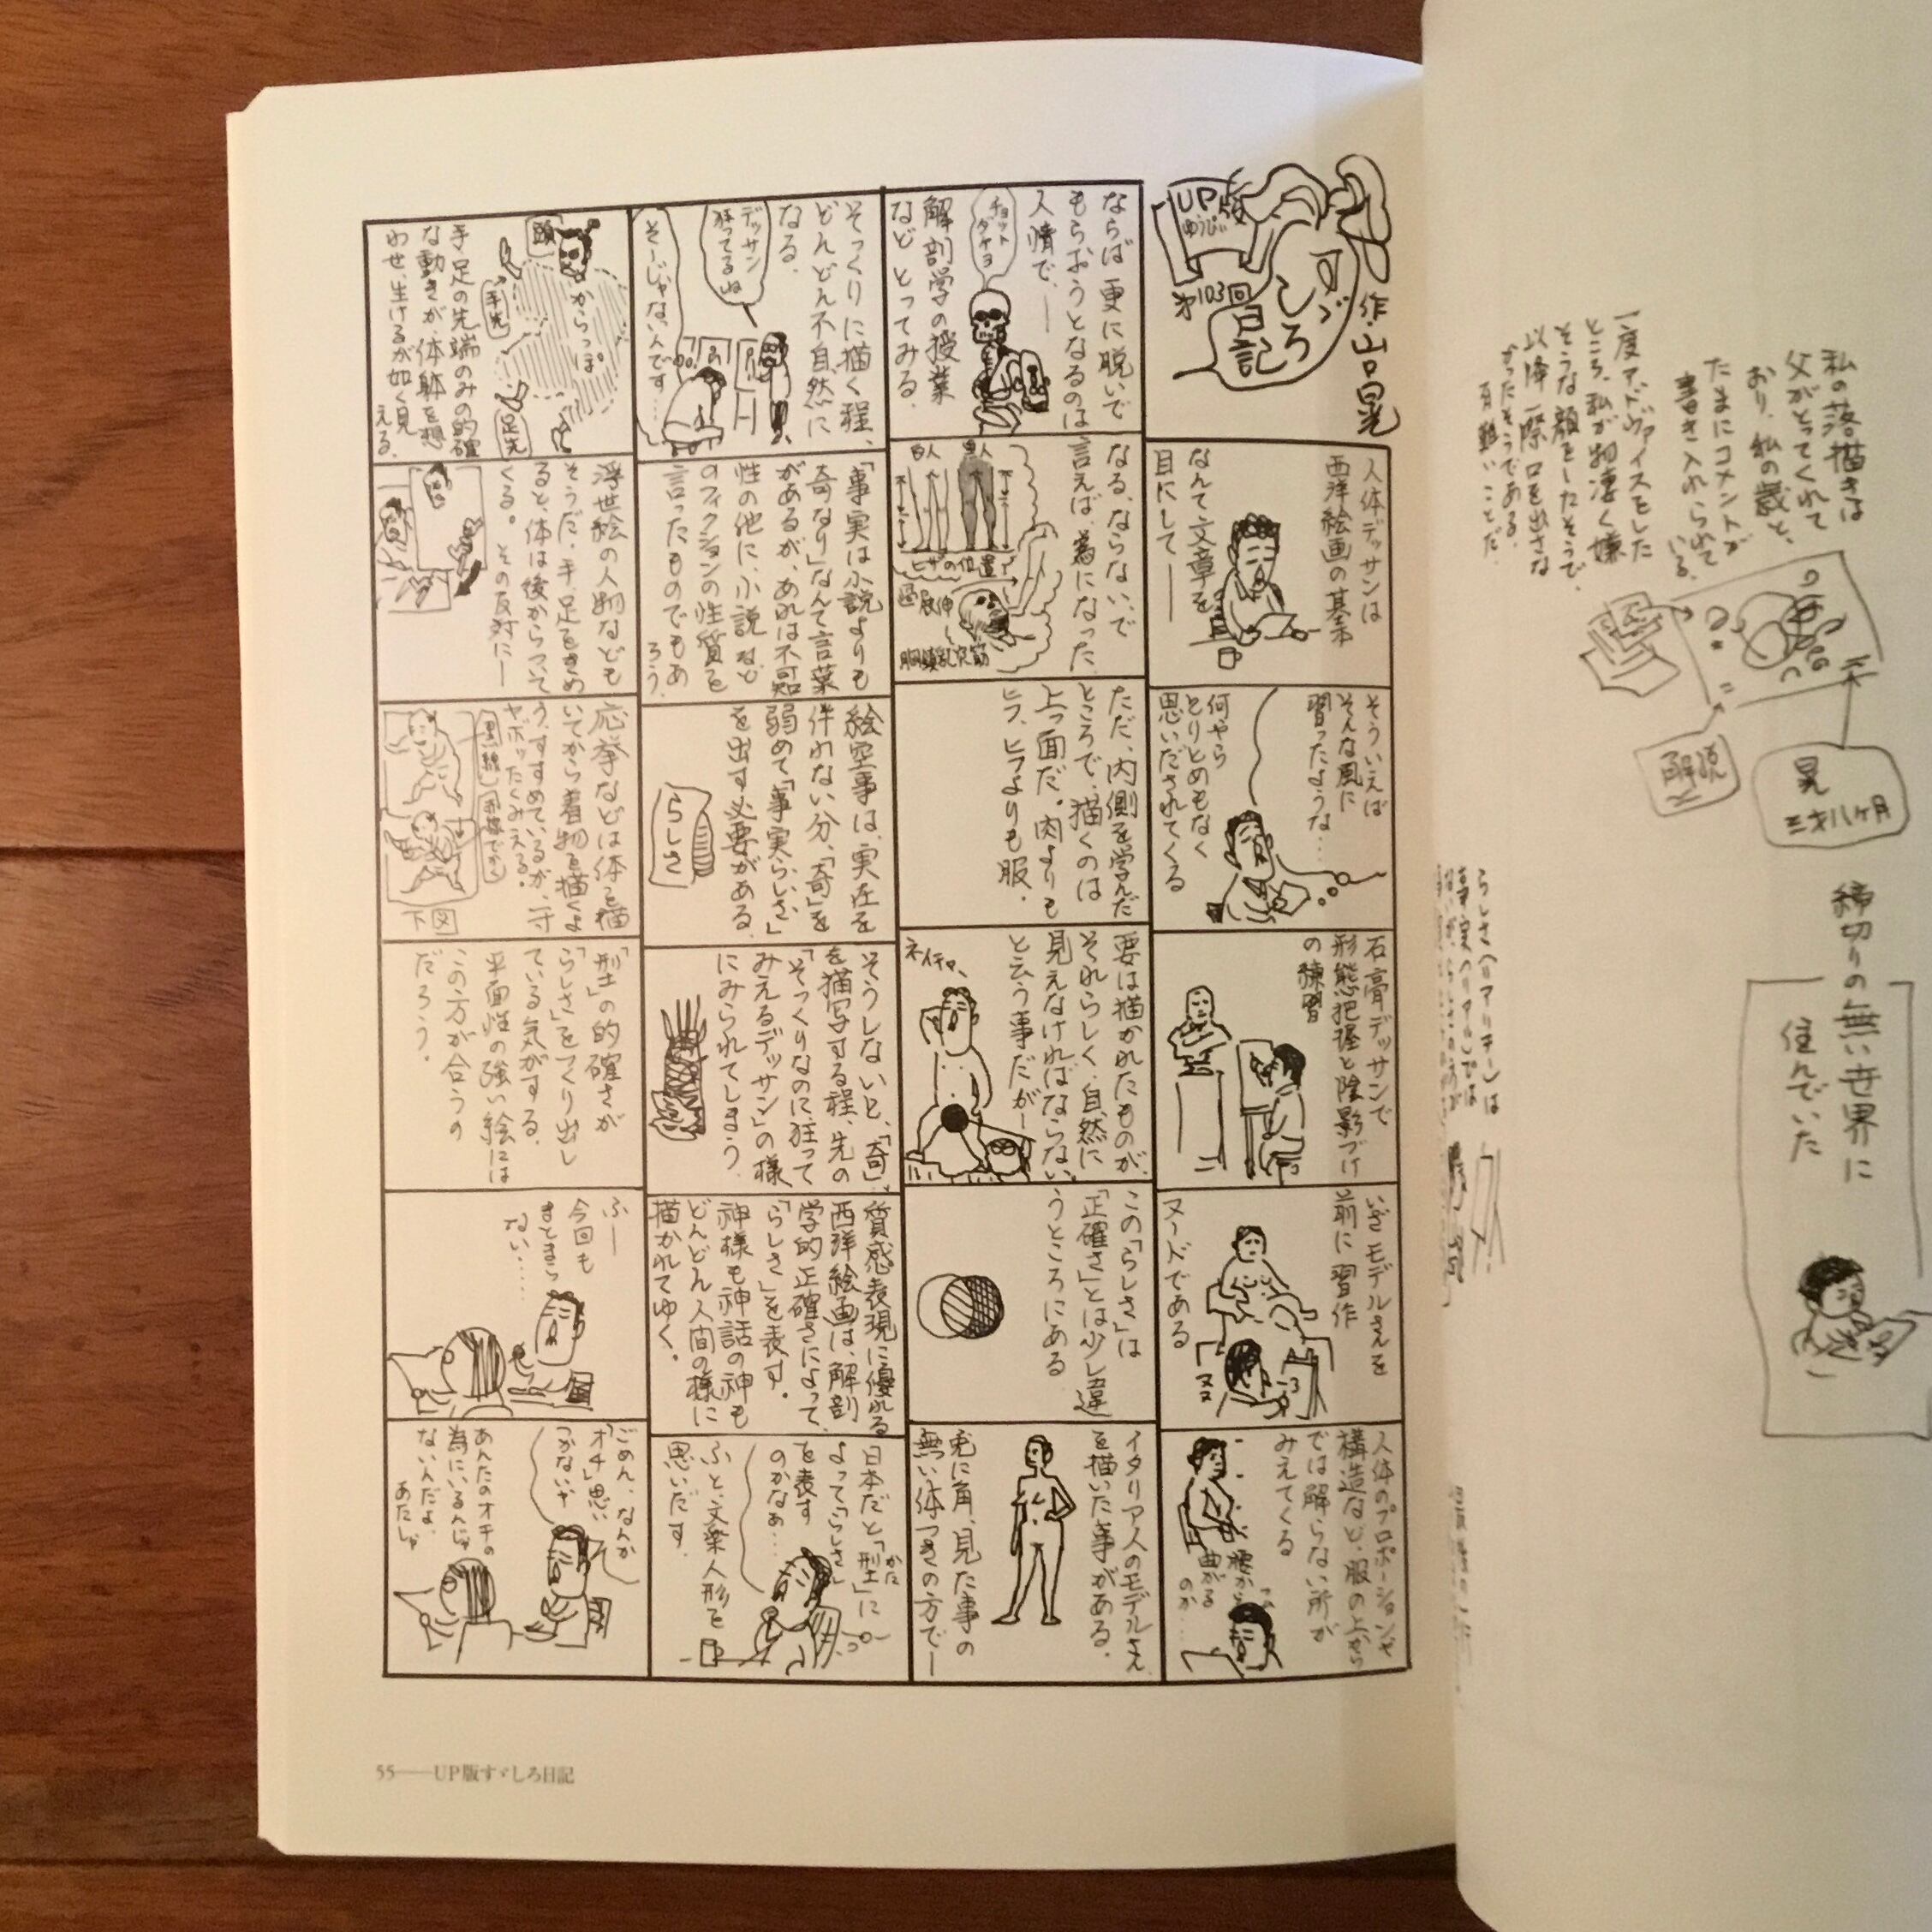 UP版
ゆうぴい
すゞしろ
日記
第103回
作・山口晃
人体デッサンは
西洋絵画の基本
なんて文章を
目にして――
そういえば
そんな風に
習ったような…
何やら
とりとめもなく
思いだされてくる
石膏デッサンで
形態把握と陰影づけ
の練習
いざモデルさんを
前に習作
ヌードである
ヌヌ
人体のプロポーションや
構造など、服の上から
では解らない所が
みえてくる
腰から
曲がる
のか…
ならば更に脱いで
もらおうとなるのは
人情で、――
チョット
ダケヨ
解剖学の授業
などとってみる。
なる、ならない、で
言えば、為になった。
白人
黒人
ヒザの位置
過屈伸
胸鎖乳突筋
ただ、内側を学んだ
ところで、描くのは
上っ面だ。肉よりも
ヒフ、ヒフよりも服。
要は描かれたものが、
それらしく、自然に
見えなければならない、
と云う事だが――
ネイチャー
この「らしさ」は
「正確さ」とは少し違
うところにある
イタリア人のモデルさん
を描いた事がある。
兎に角、見た事の
無い体つきの方で――
そっくりに描く程、
どんどん不自然に
なる。
デッサン
狂ってるね
そーじゃないんです…
「事実は小説よりも
奇なり」なんて言葉
があるが、あれは不可知
性の他に、小説など
のフィクションの性質を
言ったものでもあ
ろう。
絵空事は、実在を
伴わない分、「奇」を
弱めて「事実らしさ」
を出す必要がある。
らしさ
そうしないと、「奇」
を描写する程、先の
「そっくりなのに狂って
みえるデッサン」の様
にみられてしまう。
質感表現に優れる
西洋絵画は、解剖
学的正確さによって、
「らしさ」を表す。
神様も神話の神も
どんどん人間の様に
描かれてゆく。
日本だと「型」に
かた
よって「らしさ」
を表す
のかなぁ…
ふと、文楽人形を
思いだす。
頭
からっぽ
手先
足先
手足の先端のみの的確
な動きが、体躯を想
わせ、生けるが如く見
える。
浮世絵の人物なども
そうだ。手、足をきめ
ると、体は後からついて
くる。その反対に――
応挙などは体を描
いてから着物を描くよ
う、すすめているが、一寸
ヤボったくみえる。
下図
「型」の的確さが
「らしさ」をつくり出し
ている気がする。
平面性の強い絵には
この方が合うの
だろう。
ふー
今回も
まとまら
ない……
ごめん、なんか
「オチ」思い
つかないや
あんたのオチの
為にいるんじゃ
ないんだよ、
あたしゃ
55――UP版すゞしろ日記
私の落描きは
父がとってくれて
おり、私の歳と、
たまにコメントが
書き入れられて
いる。
一度アドヴァイスをした
ところ、私が物凄く嫌
そうな顔をしたそうで、
以降一際口を出さな
かったそうである。
有難いことだ。
解説
晃
三才八ヶ月
締切りの無い世界に
住んでいた
らしさ(リアリティー)は